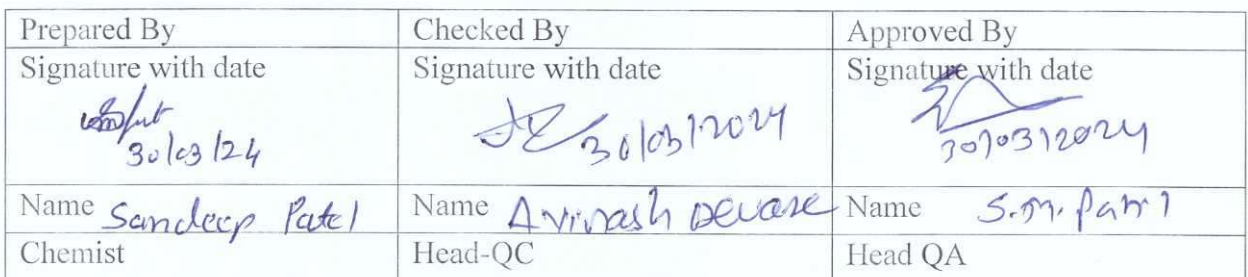 Prepared By Checked By Approved By
Signature with date Signature with date Signature with date
30/03/24 30/03/2024 30/03/2024
Name Sandeep Patel Name Avinash Devare Name S.M. Patil
Chemist Head-QC Head QA